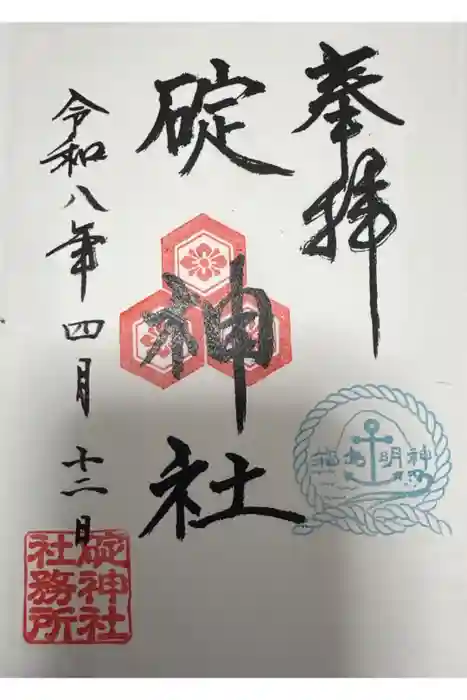 奉拝
碇神社
令和八年四月十二日
碇神社
社務所
明神